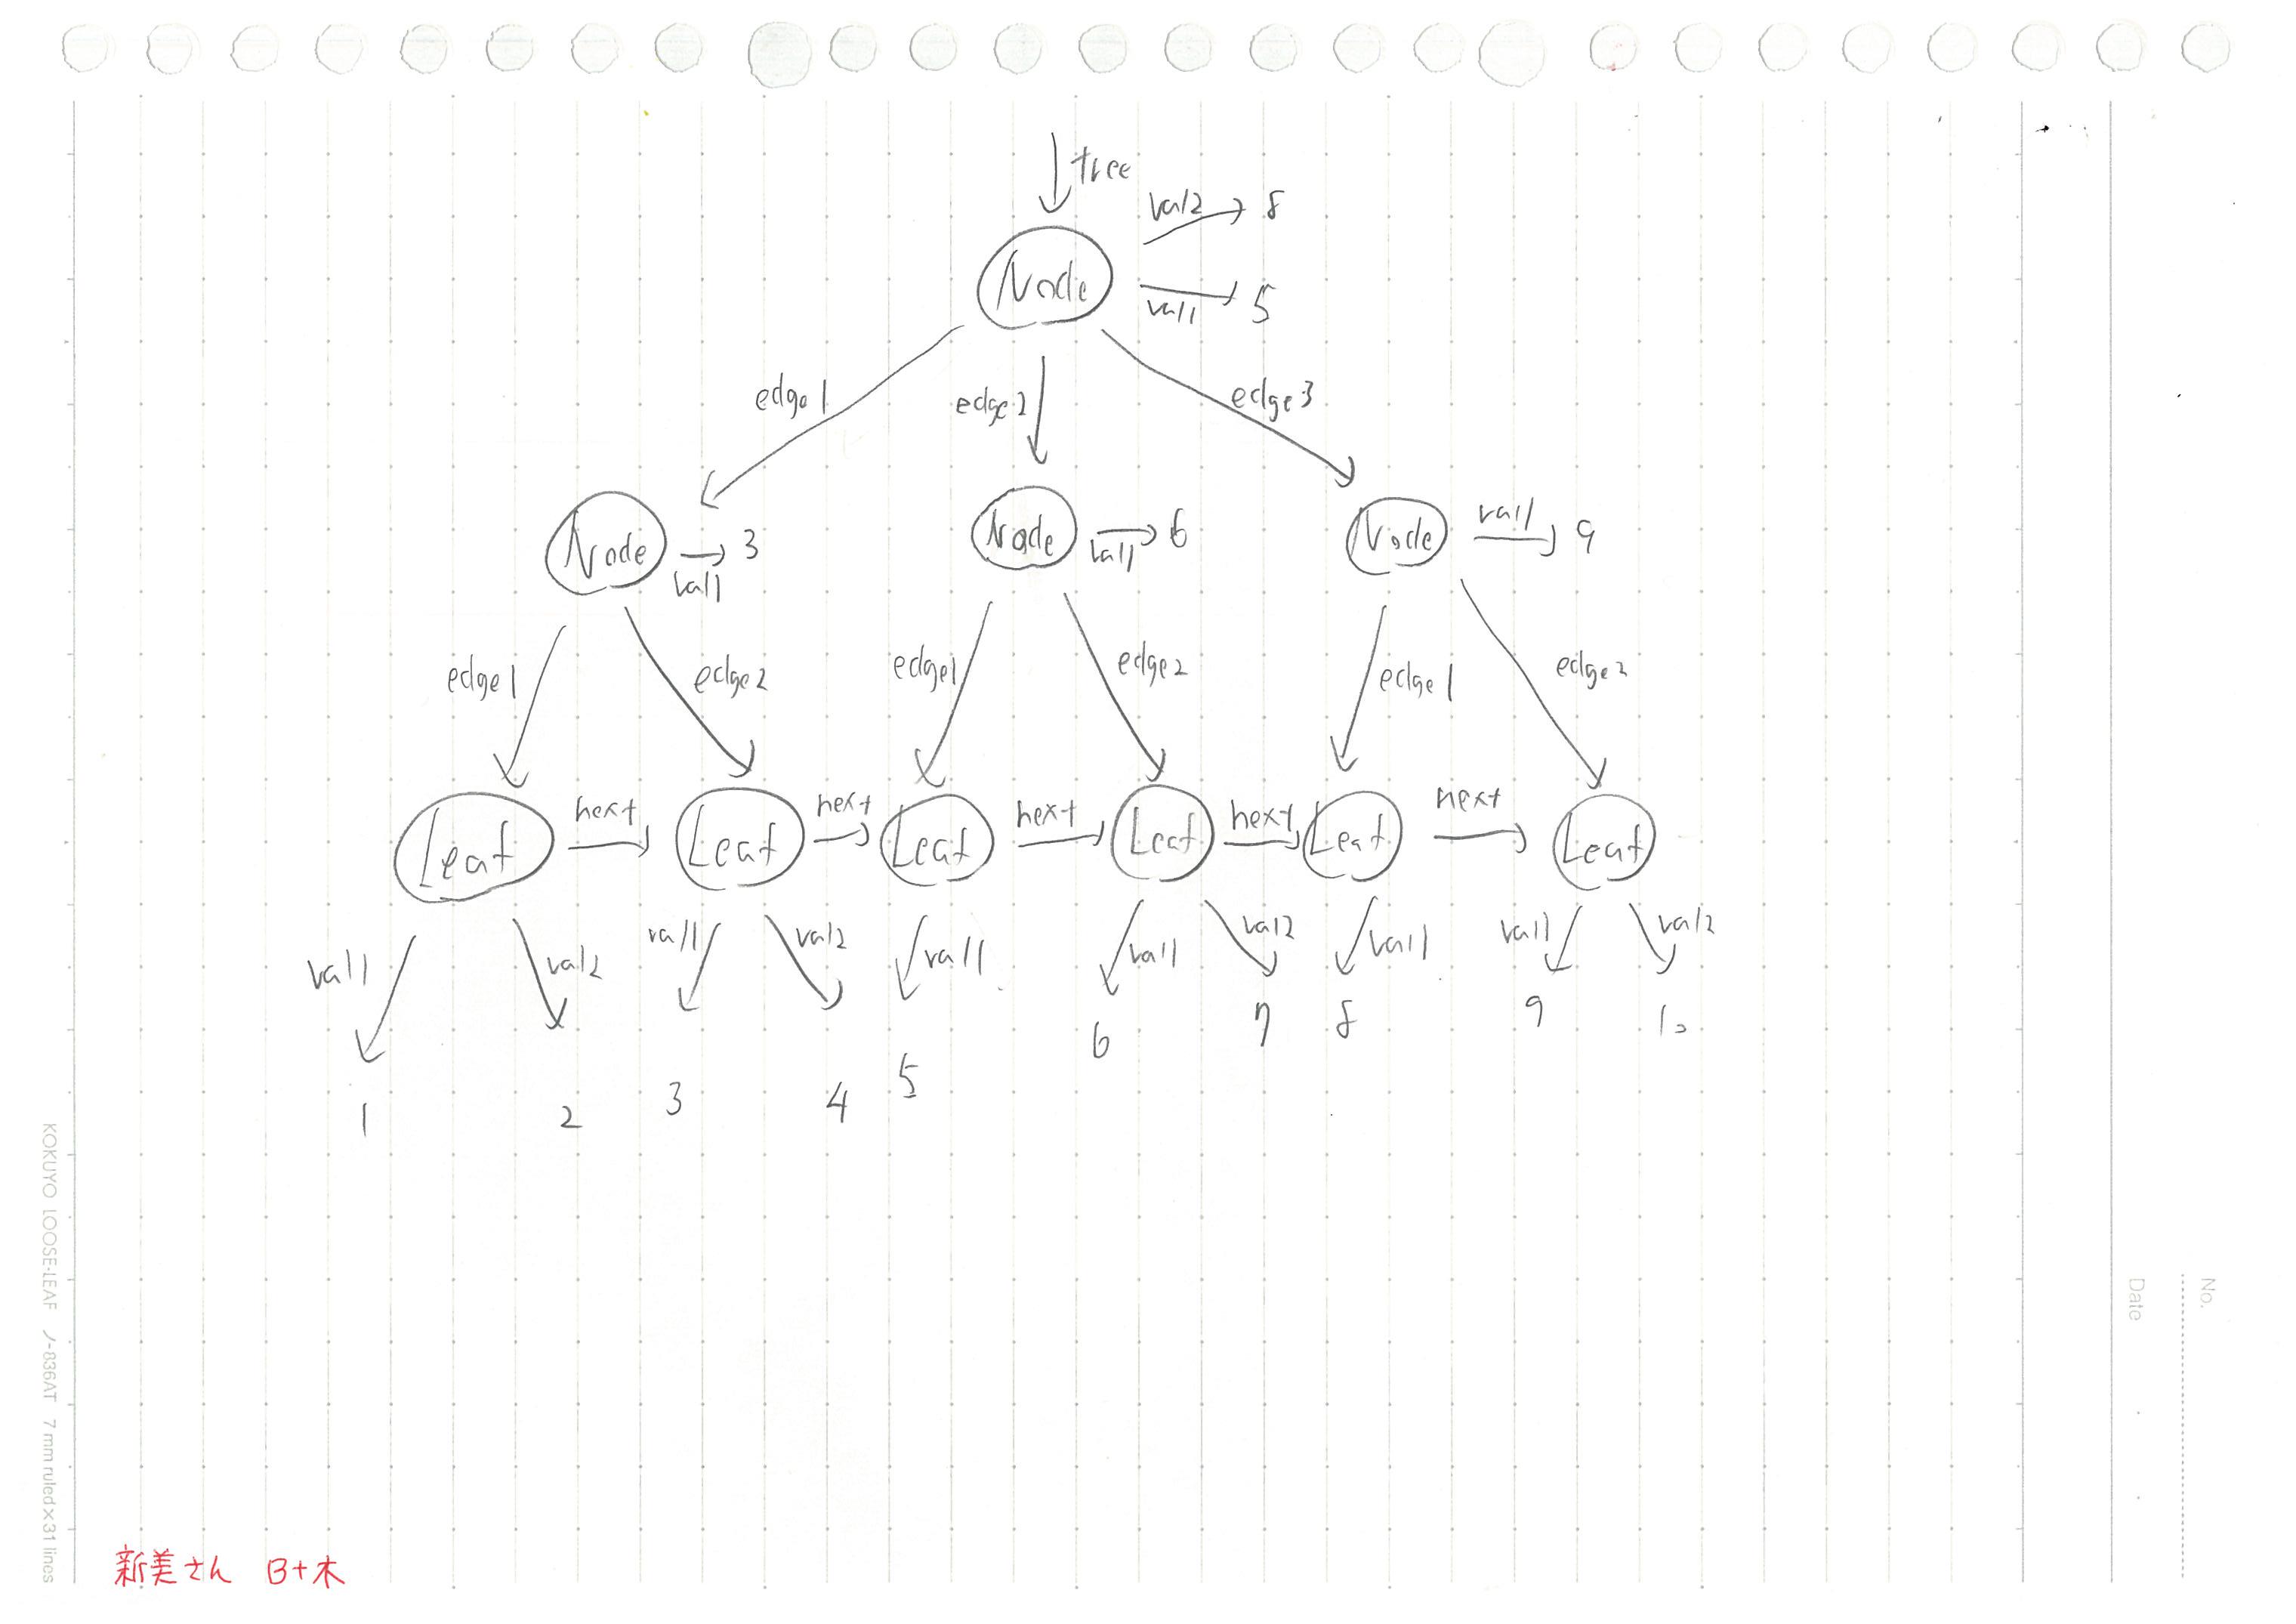 tree
val2 8
Node
val1 5
edge1 edge2 edge3
Node val1 3 Node val1 6 Node val1 9
edge1 edge2 edge1 edge2 edge1 edge2
Leaf next Leaf next Leaf next Leaf next Leaf next Leaf
val1 val2 val1 val2 val1 val1 val2 val1 val1 val2
1 2 3 4 5 6 7 8 9 10
新美さん B+木
KOKUYO LOOSE-LEAF ノ-836AT 7 mm ruled×31 lines
No.
Date